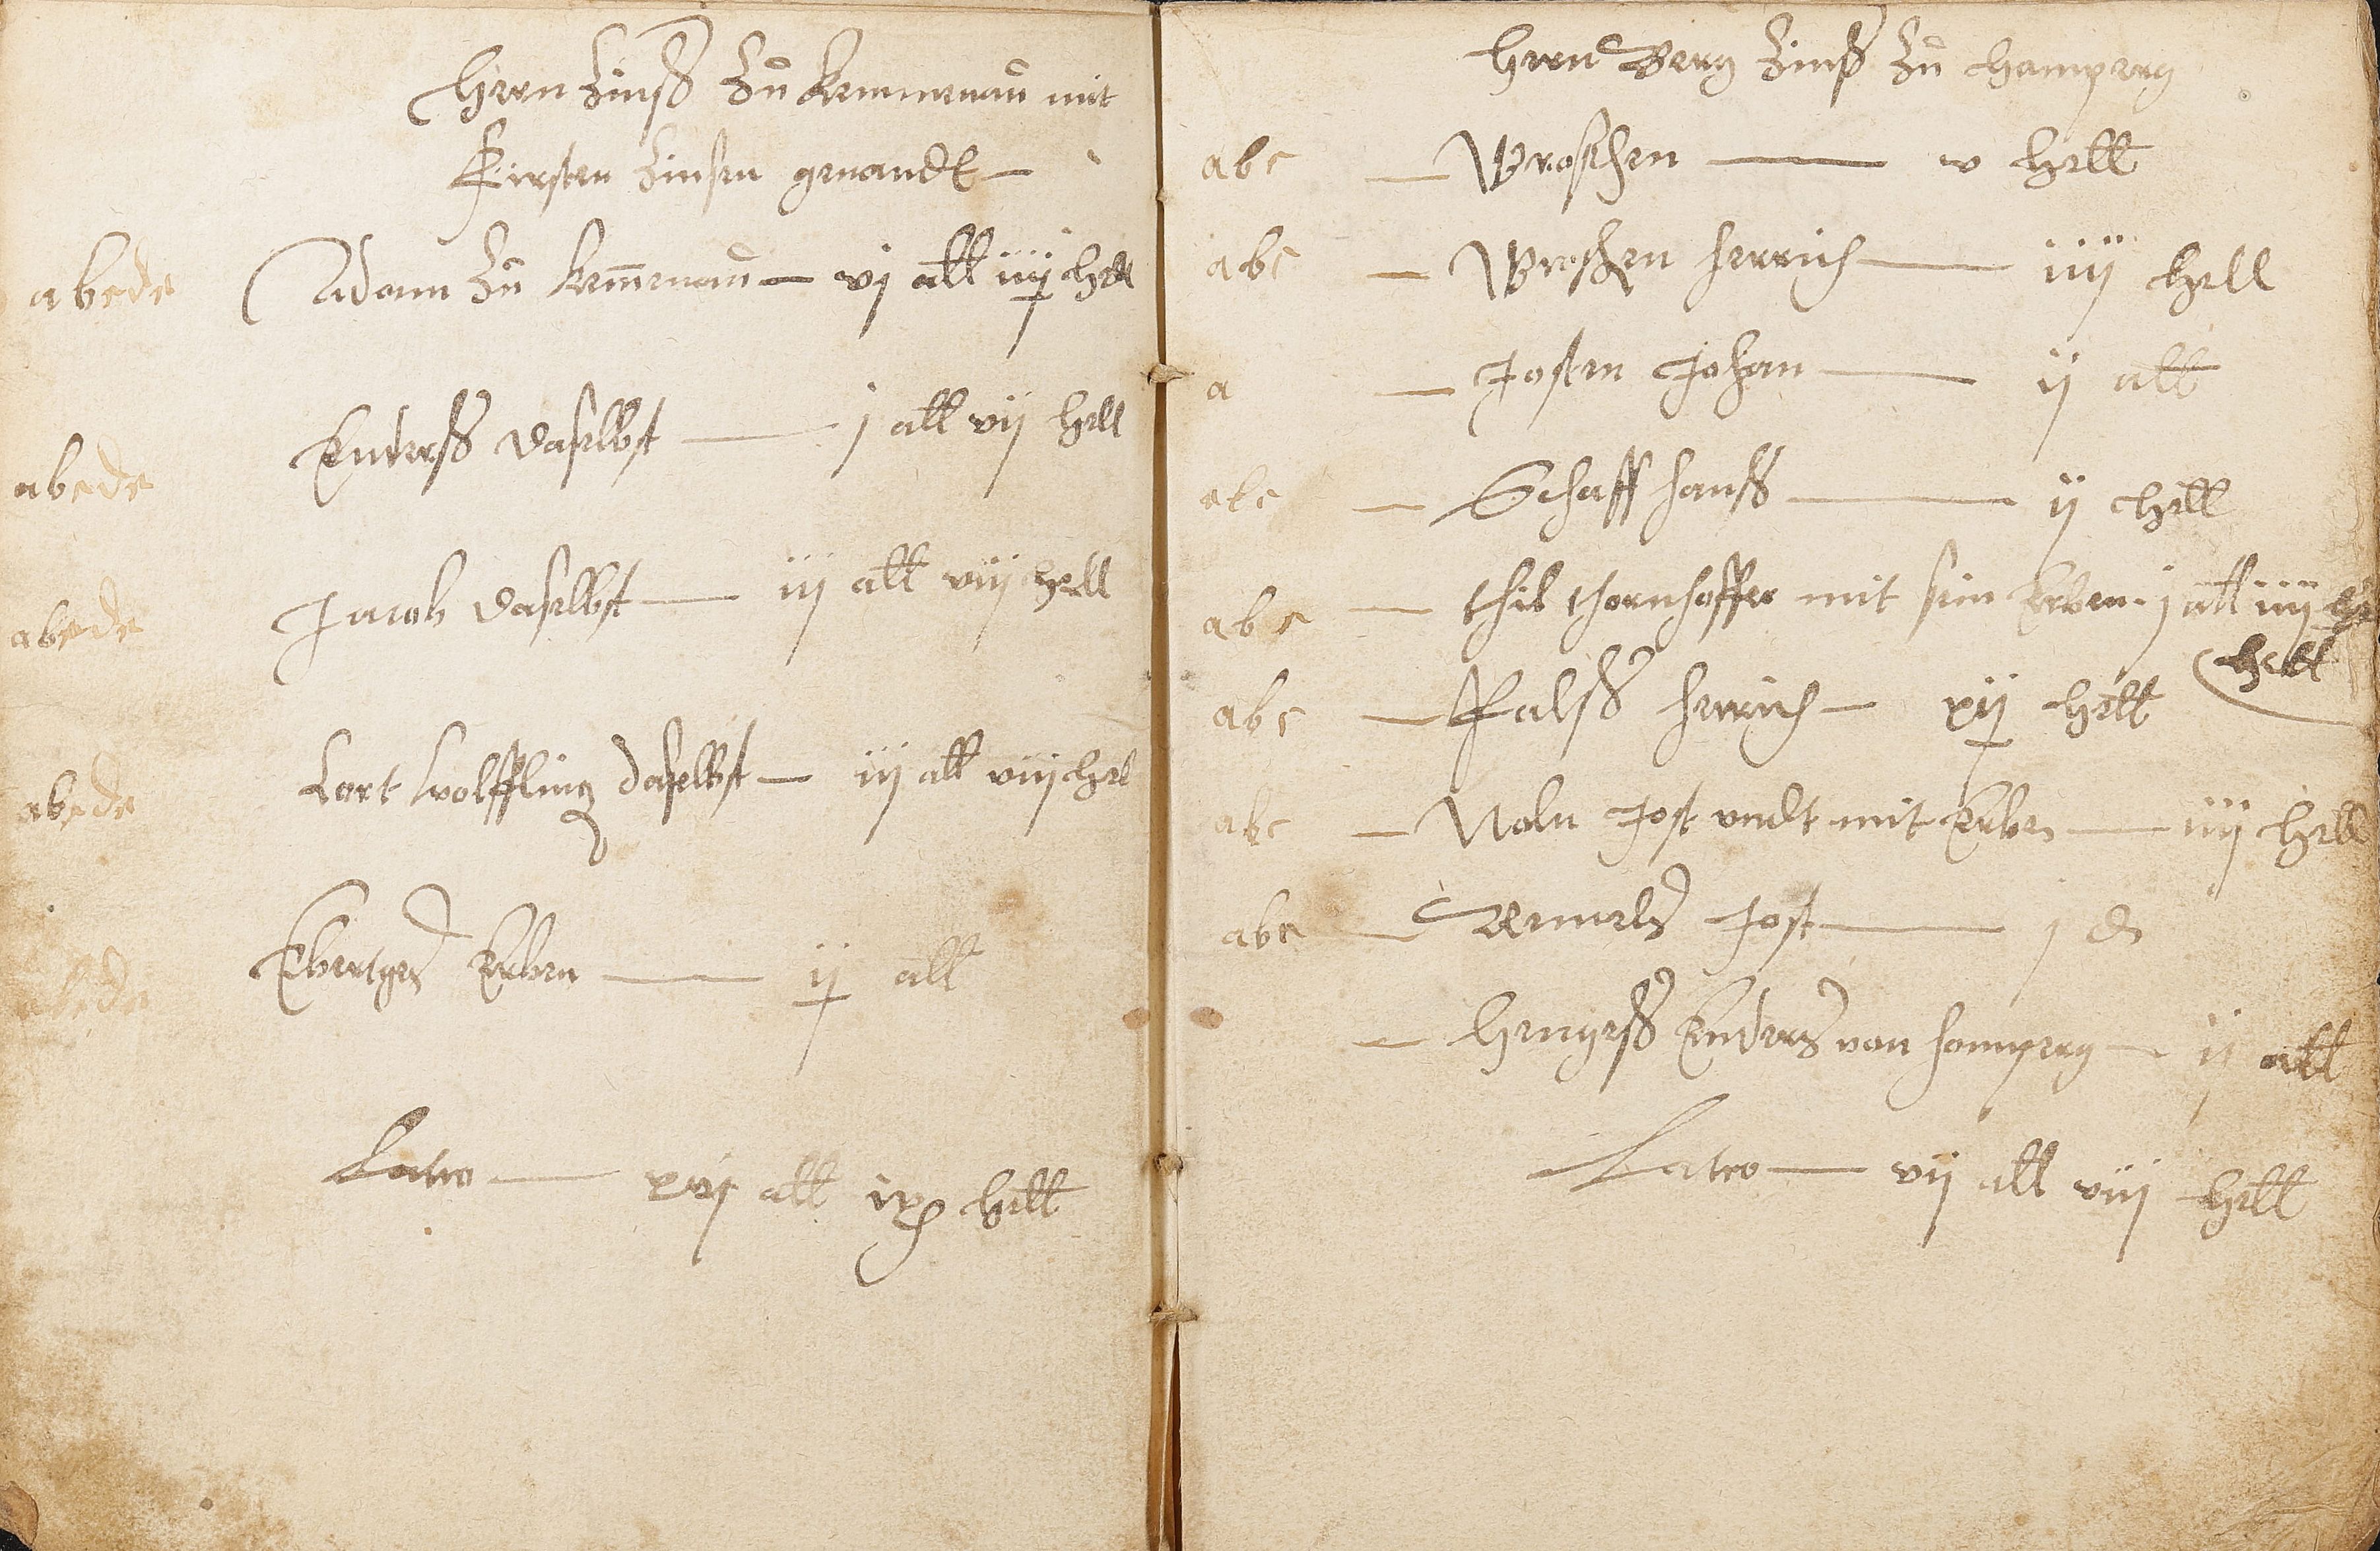 Herrn Zinß Zu Kemmenaw mit
Firsten Zinsen genandt
abcde Adam Zu Kemmenaw — vj alb iiij hell
abcde Enderß daselbst — j alb vij hell
abcde Jacob daselbst — iij alb viij hell
abcde Cort Wolffling daselbst — iij alb viij hel
abcde Ebertges Erben — ij alb
Latus — xvij alb ix hell
Herrn Berg Zinß Zu Hamperg
abc — Wroschen — v hell
abc — Wroschen Henrich — iiij hell
a — Josten Johan — ij alb
abc — Schaff Hanß — ij hell
abc — Thil Thornhoffer mit sein Erben j alb iiij
hell
abc — Falß Henrich — xij hell
abc — Noln Jost undt mit Erben — iiij hell
abc — Jost — j d
— Hengeß Enders von Hamperg — ij alb
Latus — vij alb viij hell